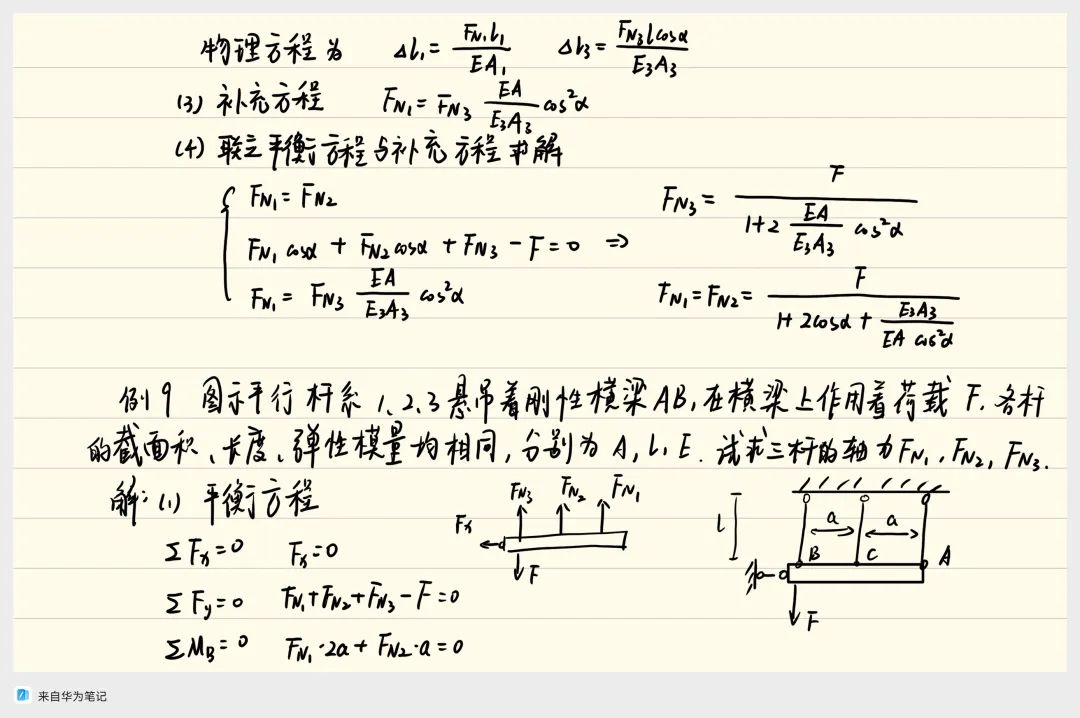 物理方程为 Δl₁ = F_N₁l₁/EA₁ Δl₃ = F_N₃lcosα/E₃A₃
(3) 补充方程 F_N₁ = F_N₃ EA/E₃A₃ cos²α
(4) 联立平衡方程与补充方程求解
F_N₁ = F_N₂
F_N₁cosα + F_N₂cosα + F_N₃ - F = 0 ⇒
F_N₁ = F_N₃ EA/E₃A₃ cos²α
F_N₃ = F/(1+2 EA/E₃A₃ cos²α)
F_N₁ = F_N₂ = F/(1+2cosα + E₃A₃/EA cos²α)
例9 图示平行杆系 1、2、3 悬吊着刚性横梁AB, 在横梁上作用着荷载 F. 各杆
的截面积、长度、弹性模量均相同, 分别为 A, l, E. 试求三杆的轴力 F_N₁, F_N₂, F_N₃.
解: (1) 平衡方程
ΣFₓ=0 Fₓ=0
ΣF_y=0 F_N₁+F_N₂+F_N₃-F=0
ΣM_B=0 F_N₁·2a+F_N₂·a=0
F_N₃ F_N₂ F_N₁
Fₓ
F
l a a
B C A
F
来自华为笔记